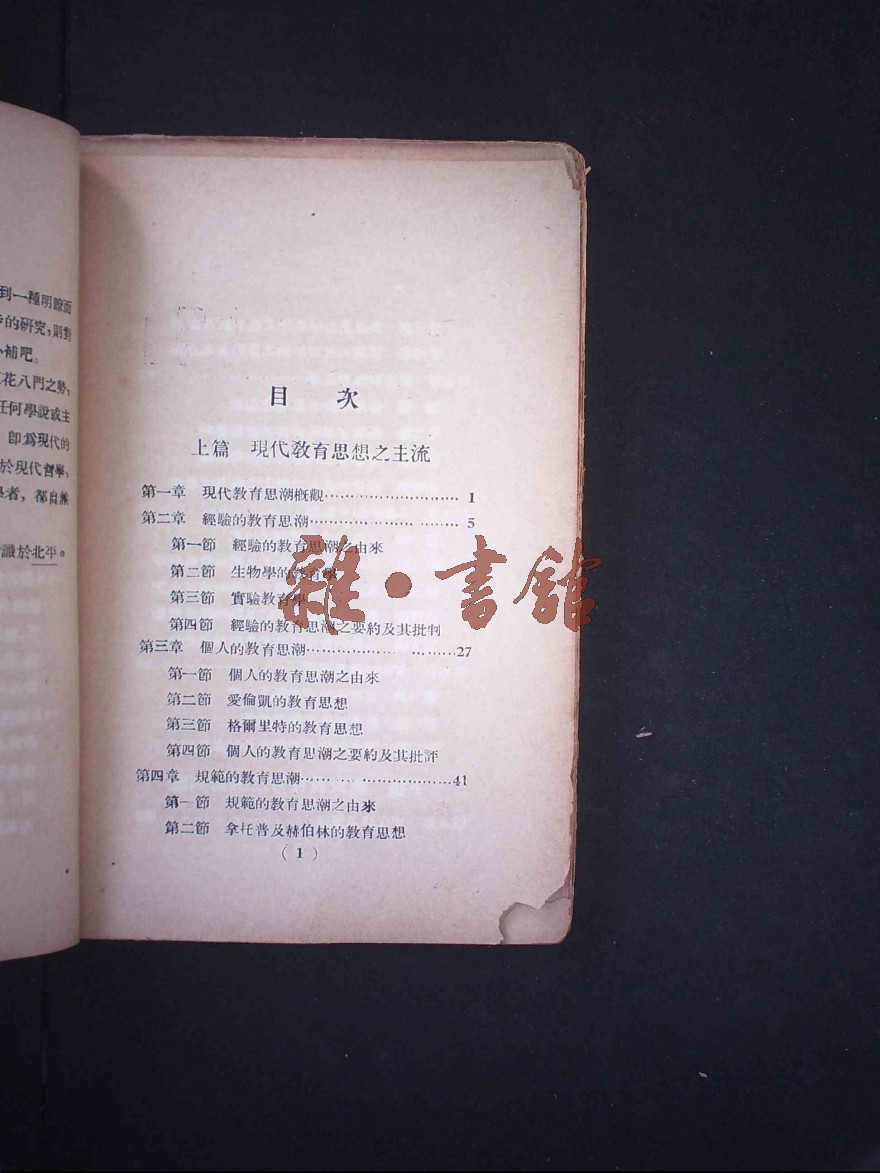 到一種明瞭而
的研究,則對
補吧。
花八門之勢,
任何學說或主
卽爲現代的
於現代哲學,
者,都自無
識於北平。
目 次
上篇 現代教育思想之主流
第一章 現代教育思潮概觀……………………… 1
第二章 經驗的教育思潮……………………… 5
第一節 經驗的教育思潮之由來
第二節 生物學的教育學
第三節 實驗教育學
第四節 經驗的教育思潮之要約及其批判
第三章 個人的教育思潮………………………27
第一節 個人的教育思潮之由來
第二節 愛倫凱的教育思想
第三節 格爾里特的教育思想
第四節 個人的教育思潮之要約及其批評
第四章 規範的教育思潮………………………41
第一節 規範的教育思潮之由來
第二節 拿托普及赫伯林的教育思想
( 1 )
雜·書館